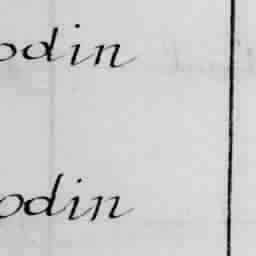 odin
odin